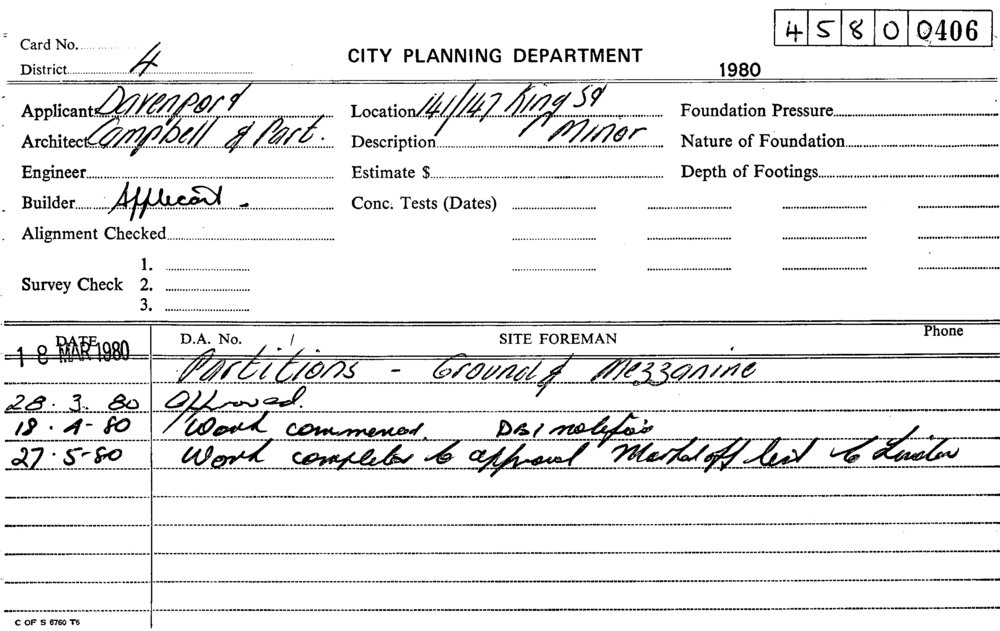 45800406
Card No.
District 4
CITY PLANNING DEPARTMENT
1980
Applicant Davenport
Location 141/147 King St
Foundation Pressure
Architect Campbell & Part.
Description Minor
Nature of Foundation
Engineer
Estimate $
Depth of Footings
Builder Applicant -
Conc. Tests (Dates)
Alignment Checked
1.
Survey Check 2.
3.
DATE D.A. No. / SITE FOREMAN Phone
18 MAR 1980
Partitions - Ground & Mezzanine
28.3.80 Approved.
18-4-80 Work commenced. DBI
27.5-80 Work completed to approval
C OF S 6760 T6